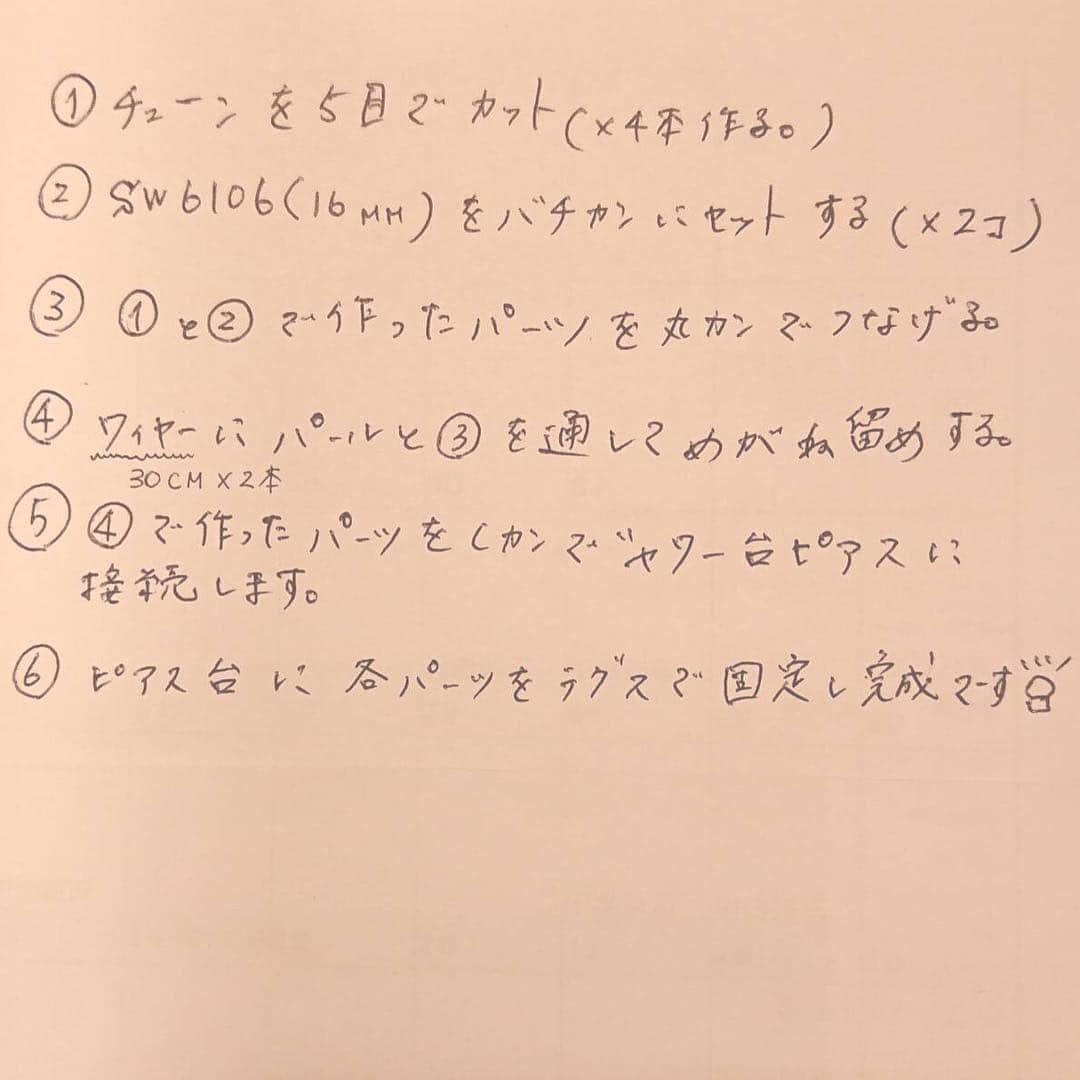 ① チェーンを5目でカット(×4本作る。)
② SW6106(16MM)をバチカンにセットする(×2コ)
③ ①と②で作ったパーツを丸カンでつなげる。
④ ワイヤーにパールと③を通してめがね留めする。
30CM×2本
⑤ ④で作ったパーツをCカンでシャワー台ピアスに
接続します。
⑥ ピアス台に各パーツをラグスで固定し完成です